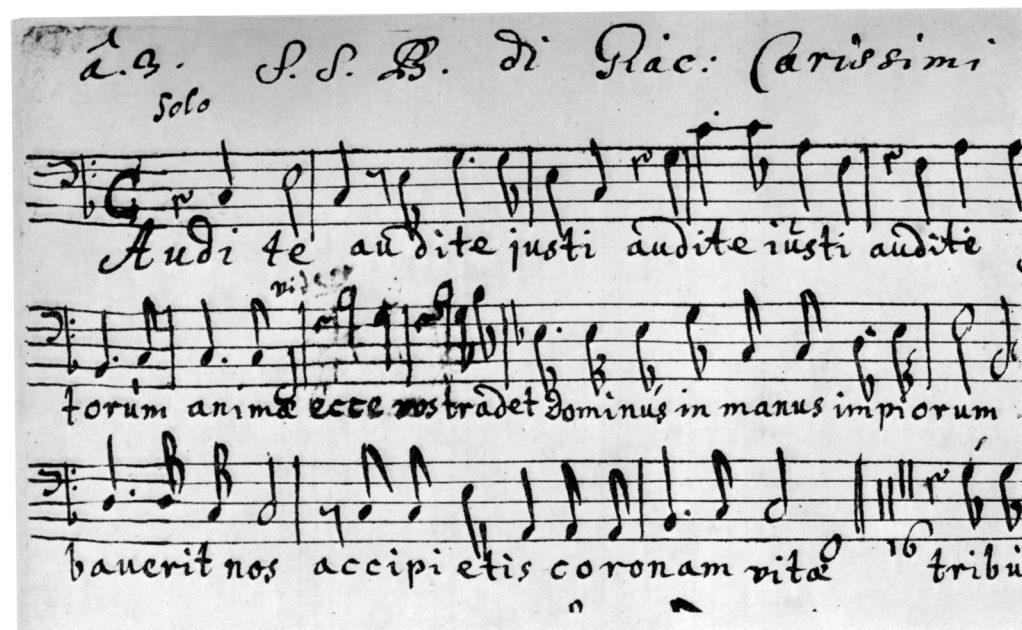 â. 3. S. S. B. di Giac: Carissimi
Solo
Audi te audite justi audite iusti audite
torum animæ ecce vos tradet Dominus in manus impiorum
baverit nos accipi etis coronam vitæ 16 tribu